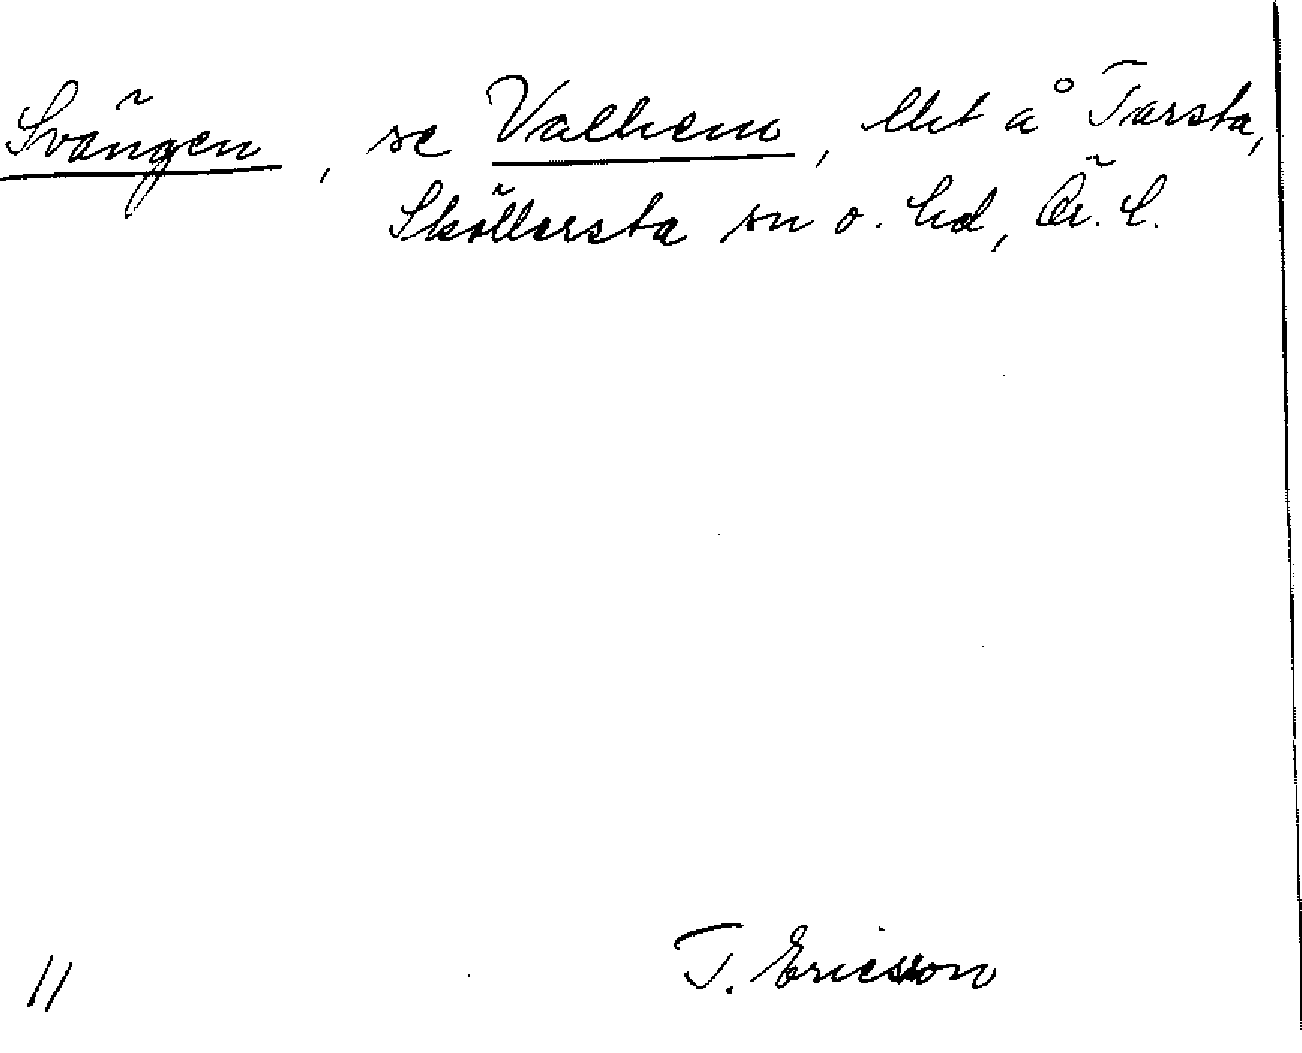 Svängen, se Valhem, lht å Tarsta,
Sköllersta sn o. hd, Ör. l.
T. Ericsson
11